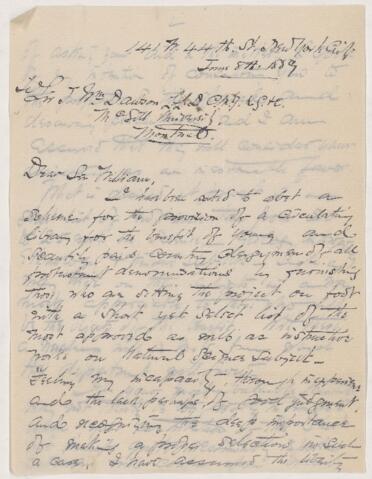 141 W. 44th. St. New York City
June 8th 1887
To Sir J Wm Dawson
McGill University
Montreal.
Dear Sir William,
I have been asked to abet a
scheme for the provision of a circulating
library for the benefit of young and
scantily paid country clergymen of all
protestant denominations by furnishing
those who are setting the project on foot
with a short yet select list of the
most approved as well as instructive
works on Natural Science Subjects.
Feeling my incapacity through inexperience
and the lack perhaps of good judgment
and recognizing the deep importance
of making a proper selection in such
a case, I have assumed the liberty